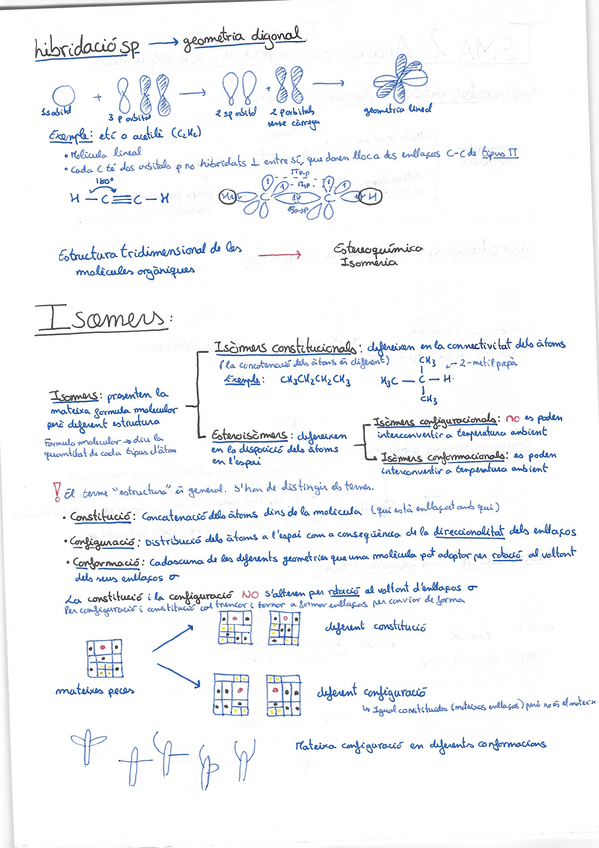 hibridació sp → geometria digonal
1s orbital + 3 p orbital → 2 sp orbital + 2 p orbitals sense càrrega → geometria lineal
Exemple: etí o acetilè (C₂H₂)
• Molècula lineal
• Cada C té dos orbitals p no hibridats ⊥ entre sí, que donen lloc a dos enllaços C-C de tipus Π
180°
H - C ≡ C - H
Πp-p
Πp-p
H C C H
σsp-sp
Estructura tridimensional de les
molècules orgàniques
→ Estereoquímica
Isomeria
Isomers:
Isòmers constitucionals: defereixen en la connectivitat dels àtoms
(la concatenació dels àtoms és diferent)
Exemple: CH₃CH₂CH₂CH₃
CH₃
H₃C - C - H
CH₃
2-metilpropà
Isomers: presenten la
mateixa formula molecular
però diferent estructura
Formula molecular → diu la
quantitat de cada tipus d'àtom
Esteroisòmers: defereixen
en la disposició dels àtoms
en l'espai
Isòmers configuracionals: no es poden
interconvertir a temperatura ambient
Isòmers conformacionals: es poden
interconvertir a temperatura ambient
! El terme "estructura" és general. S'han de distingir els termes.
• Constitució: Concatenació dels àtoms dins de la molecula (qui està enllaçat amb qui)
• Configuració: Distribució dels àtoms a l'espai com a conseqüència de la direccionalitat dels enllaços
• Conformació: Cadascuna de les diferents geometries que una molècula pot adoptar per rotació al voltant
dels seus enllaços σ
La constitució i la configuració NO s'alteren per rotació al voltant d'enllaços σ
Per configuració i constitució cal trencar i tornar a formar enllaços per canviar de forma
diferent constitució
mateixes peces
diferent configuració
↳ Igual constituïdes (mateixos enllaços) però no és el mateix
Mateixa configuració en diferents conformacions